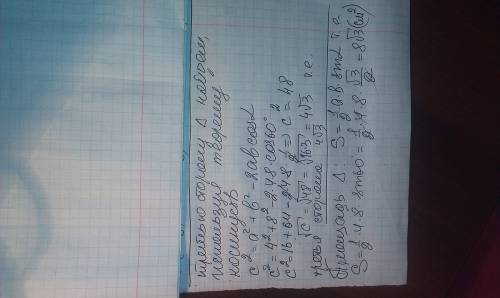 третью сторону Δ найдем,
используя теорему
косинусов
c² = a² + b² - 2ab cosα
c² = 4² + 8² - 2·4·8·cos60°
c² = 16 + 64 - 2·4·8·1/2 ⇒ c² = 48
√c² = √48 = √16·3 = 4√3 т.е.
третья сторона 4√3
Площадь Δ: S = 1/2 a·b·sinα т.е.
S = 1/2·4·8·sin60 = 1/2·4·8·√3/2 = 8√3 (см²)